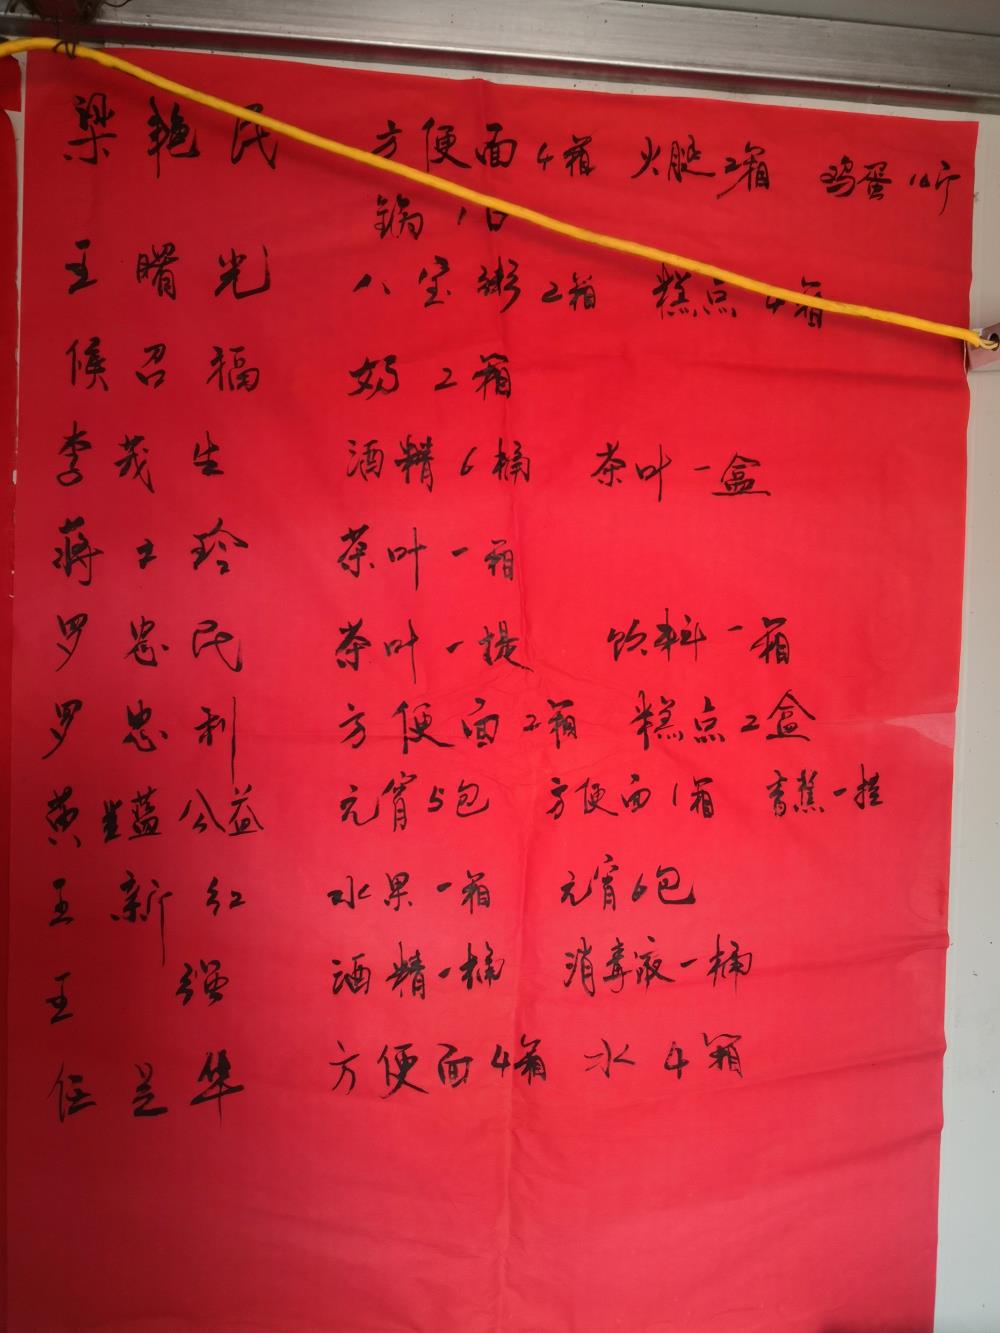 梁艳民 方便面4箱 火腿2箱 鸡蛋10斤
锅1口
王曙光 八宝粥2箱 糕点4箱
候召福 奶2箱
李茂生 酒精6桶 茶叶一盒
蒋玉玲 茶叶一箱
罗忠民 茶叶一提 饮料一箱
罗忠利 方便面2箱 糕点2盒
黄蓝公益 元宵5包 方便面1箱 香蕉一提
王新红 水果一箱 元宵6包
王强 酒精一桶 消毒液一桶
任是华 方便面4箱 水4箱